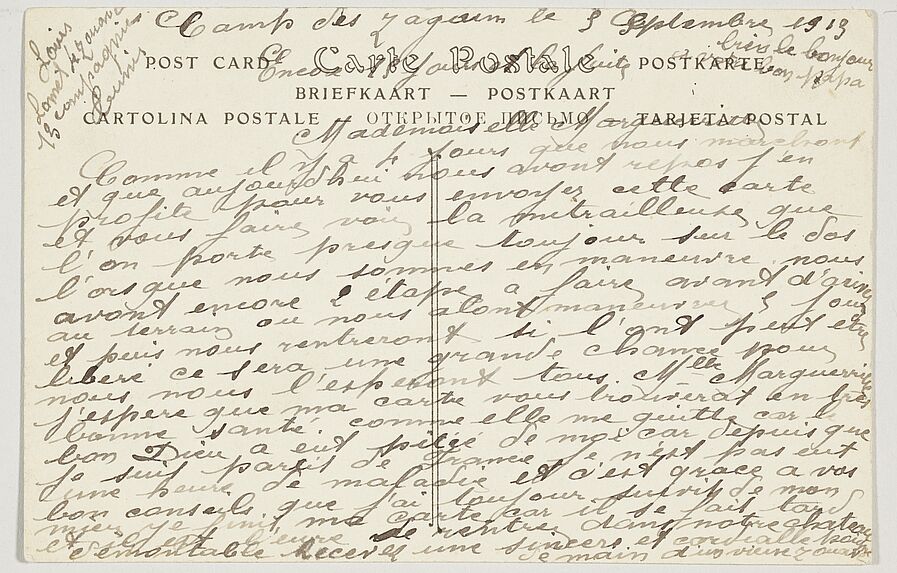 Camp des Zagoum le 3 Septembre 1913
Louis
Lamet 4 Zouave
13 compagnie
Tunis
bien le bonjour
bon papa
Encore jours
POST CARD Carte Postale POSTKARTE
BRIEFKAART — POSTKAART
CARTOLINA POSTALE — ОТКРЫТОЕ ПИСЬМО — TARJETA POSTAL
Mademoiselle Marguerite
Comme il y a 4 jours que nous marchont
et que aujourd'hui nous avont repos j'en
profite pour vous envoyer cette carte
et vous faire voir la mitrailleuse que
l'on porte presque toujour sur le dos
l'orsque nous sommes en maneuvre. nous
avont encore 2 étape a faire avant d'arriver
au terrain ou nous allont manœuvrer 3 jours
et puis nous rentreront si l'ont peut être
liberé ce sera une grande chance pour
nous nous l'esperont tous. Mlle Marguerite
j'espere que ma carte vous trouverat en très
bonne santé. comme elle me quitte car le
bon Dieu a eut pitiée de moi car depuis que
je suis partis de France je n'est pas eut
une heure de maladie et c'est grace a vos
bon conseils que j'ai toujour suivit de mon
mieu je finit ma carte car il se fait tard
et il est heure de rentrer dans notre chateau
démontable Recevez une sincere et cordialle poignée
de main d'un vieux zouave